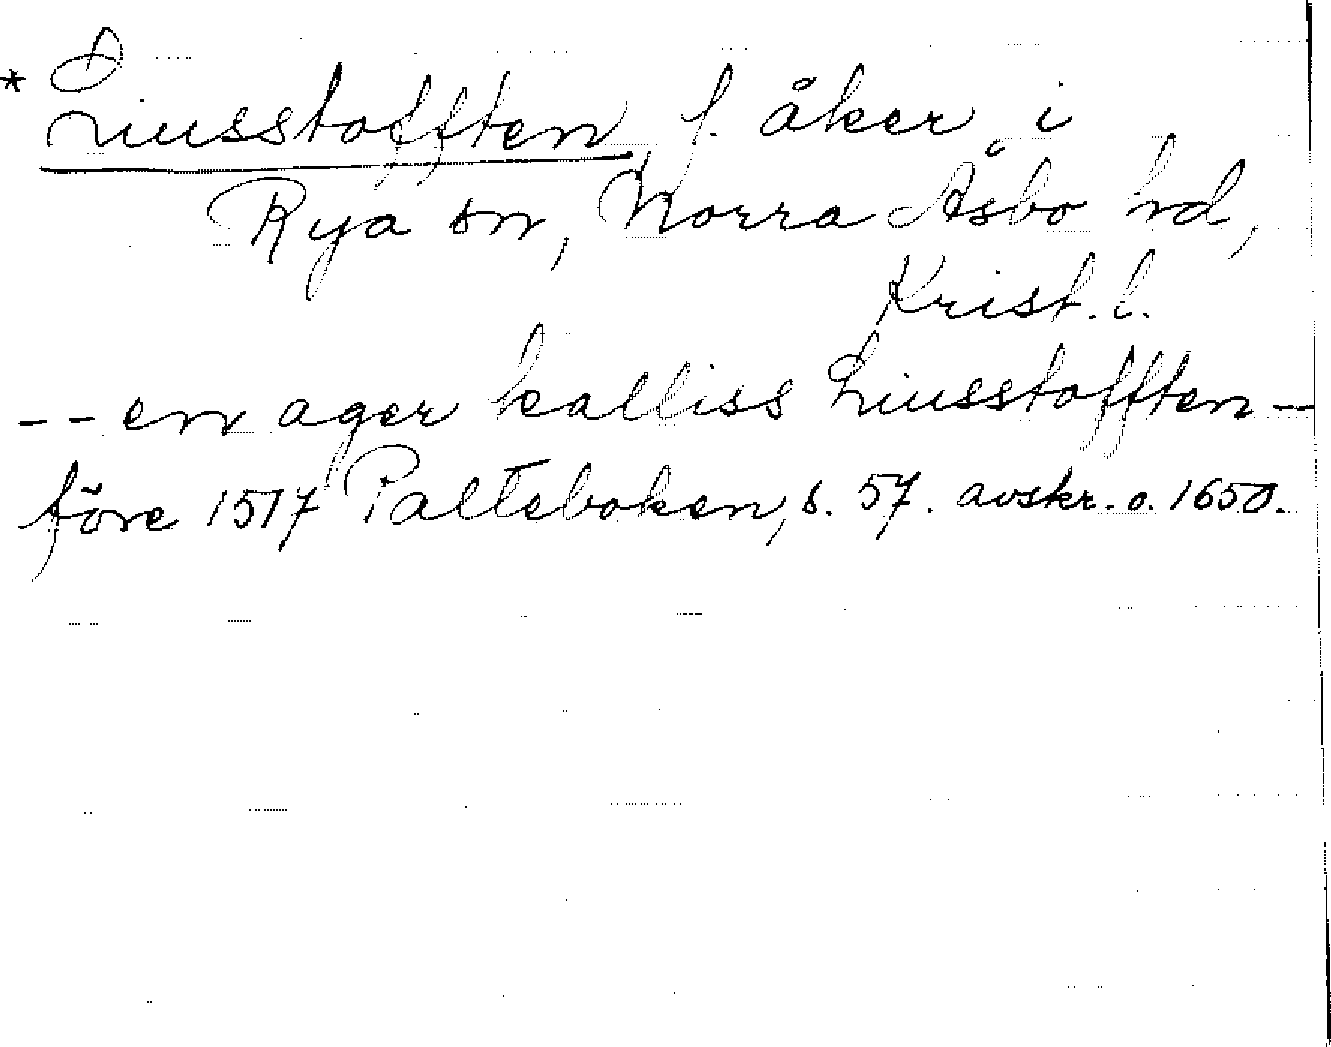 * Liusstofften f. åker i
Rya sn, Norra Åsbo hd,
Krist. l.
-- en ager kalliss Liusstofften --
före 1517 Palteboken, s. 57. avskr. o. 1650.